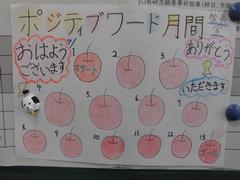 ポジティブワード月間
おはよう
ございます
ありがとう
いただきます
1.
スタート
2.
3.
4.
5.
6.
7.
8.
9.
10.
11.
12.
13.
ゴール